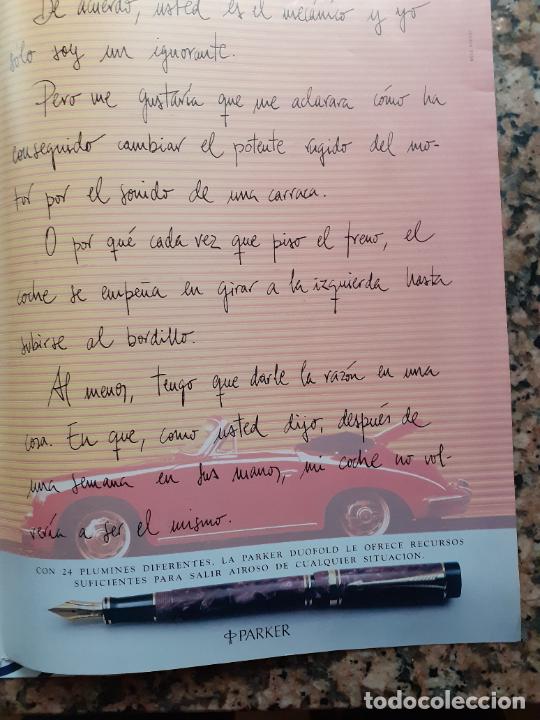 De acuerdo, usted es el mecánico y yo
solo soy un ignorante.
Pero me gustaría que me aclarara cómo ha
conseguido cambiar el potente rugido del mo-
tor por el sonido de una carraca.
O por qué cada vez que piso el freno, el
coche se empeña en girar a la izquierda hasta
subirse al bordillo.
Al menos, tengo que darle la razón en una
cosa. En que, como usted dijo, después de
una semana en sus manos, mi coche no vol-
vería a ser el mismo.
CON 24 PLUMINES DIFERENTES, LA PARKER DUOFOLD LE OFRECE RECURSOS
SUFICIENTES PARA SALIR AIROSO DE CUALQUIER SITUACION.
PARKER
todocoleccion
todocoleccion.net